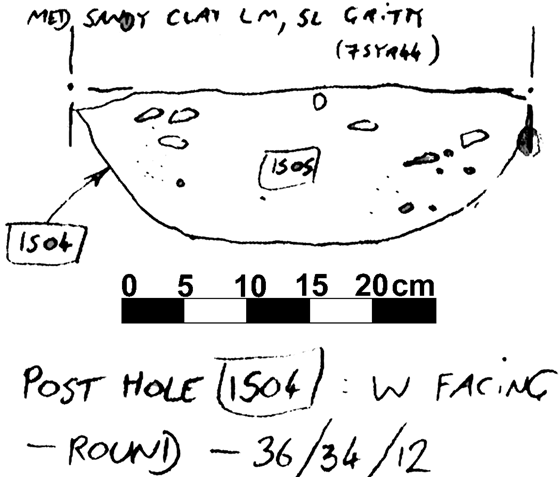 MED SANDY CLAY LM, SL GRITTY
(7SYR44)
1505
1504
0 5 10 15 20cm
POST HOLE [1504] : W FACING
- ROUND - 36/34/12